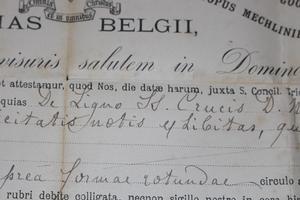 Omnia
et in omnibus
OPUS MECHLINIE
IAS BELGII,
visuris salutem in Domino
et attestamur, quod Nos, die datæ harum, juxta S. Concil. Tri
quias De Ligno SS. Crucis D. N
icitatis notis exhibitas, qu
prea formae rotundae circulo a
rubri debite colligata, necnon sigillo nostro in cera